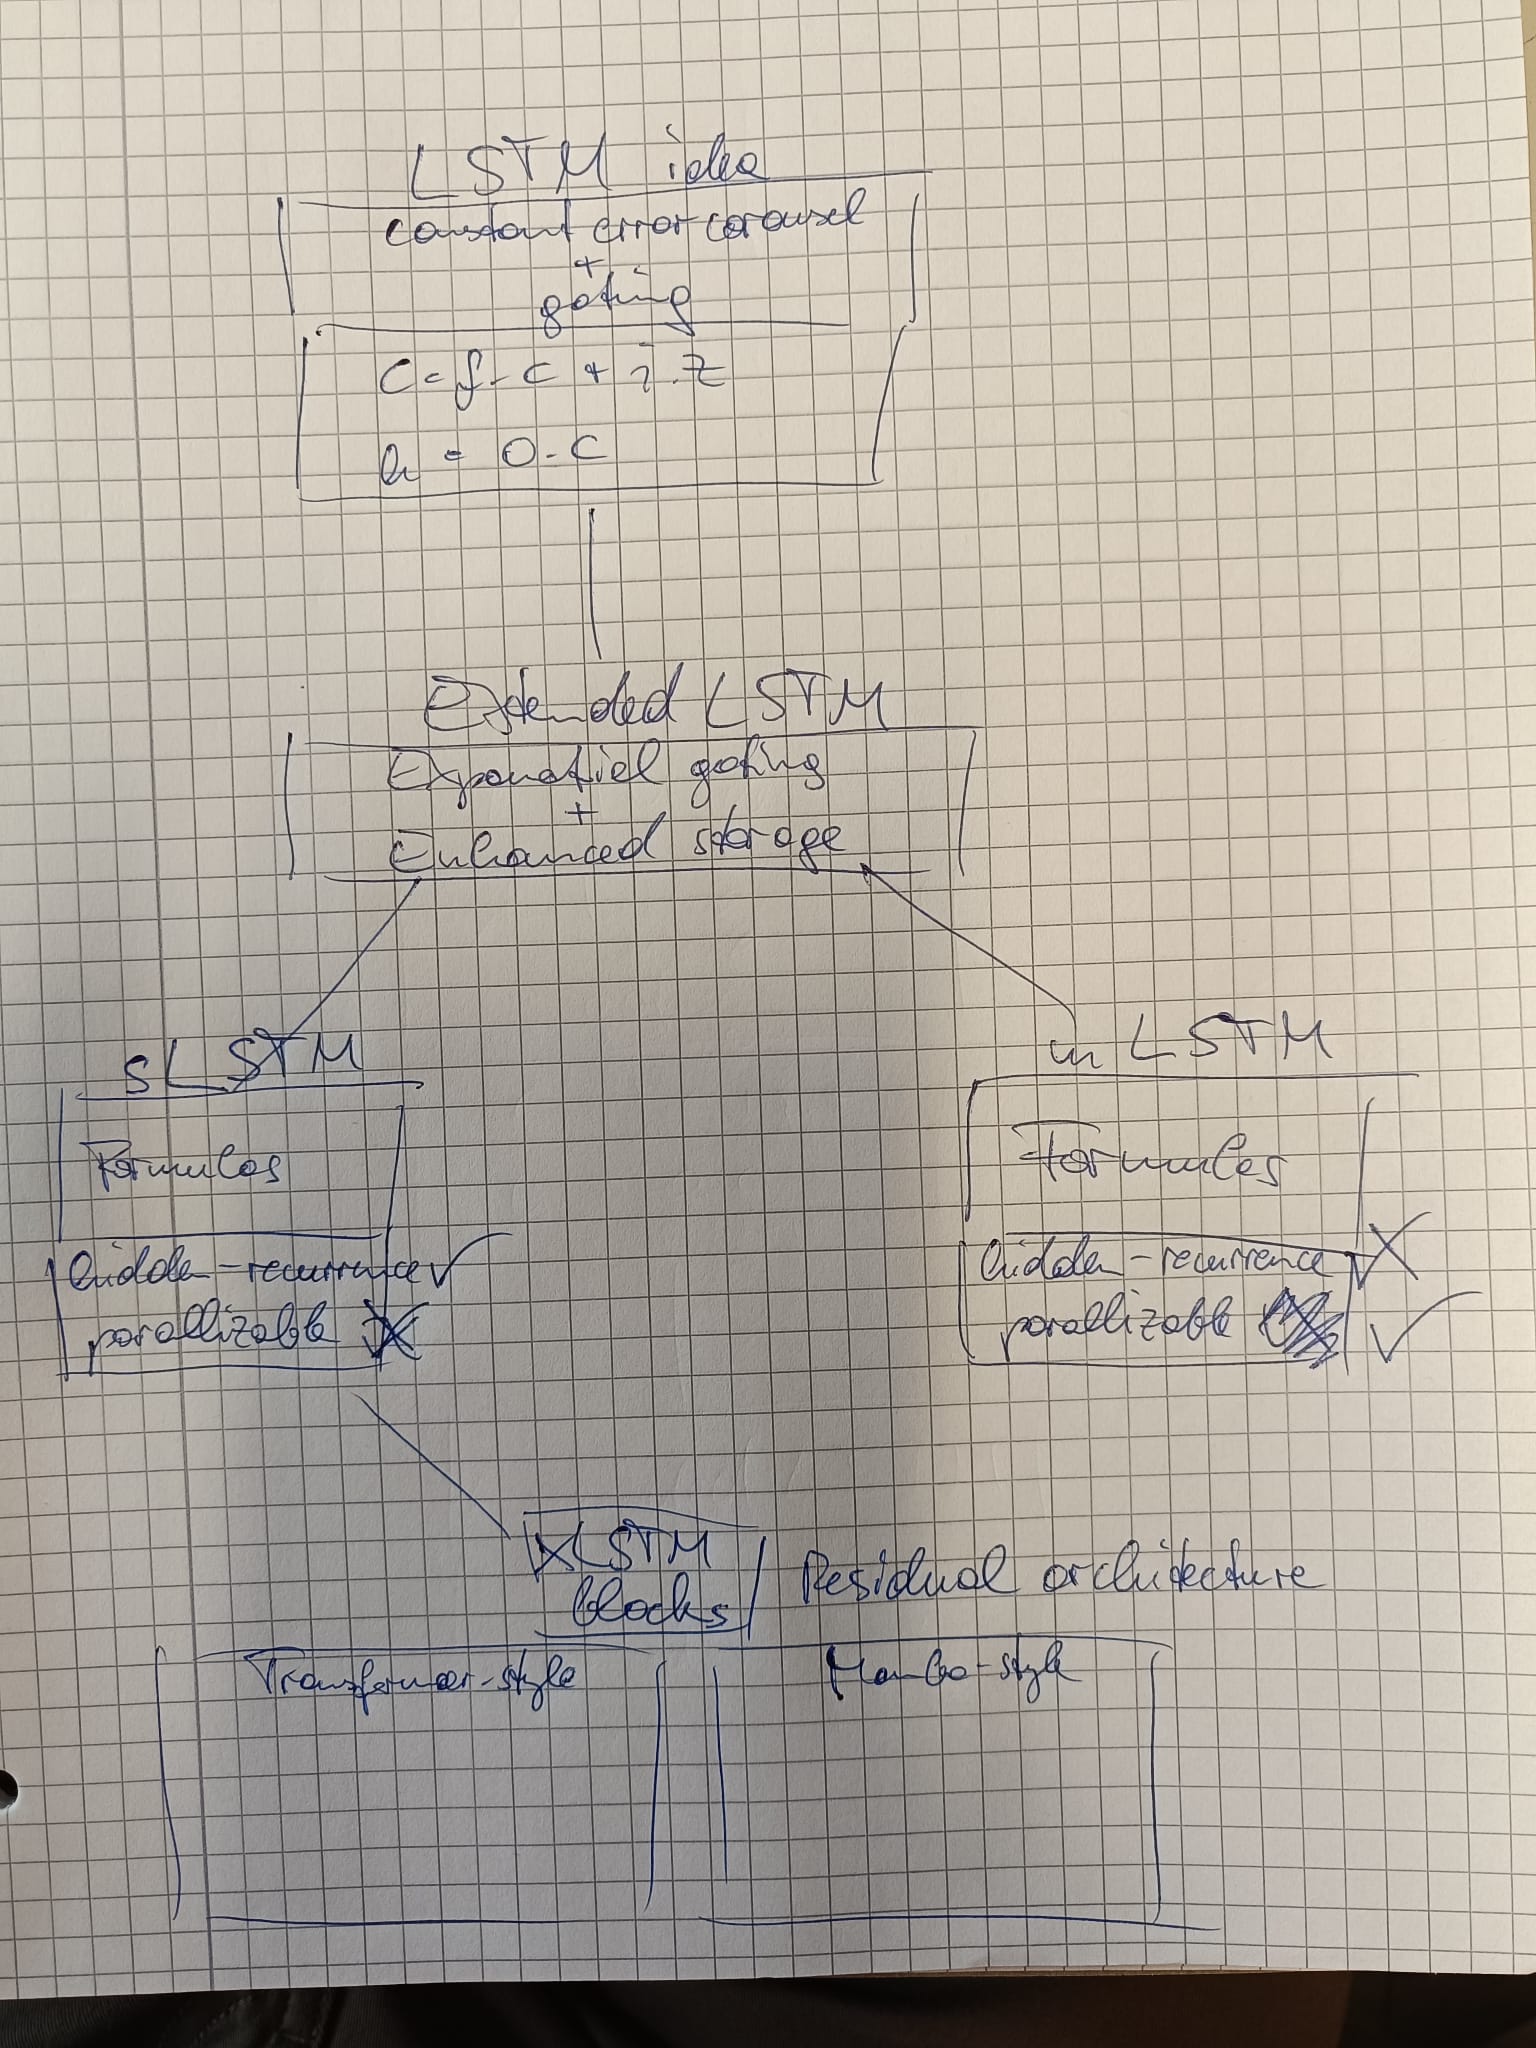 LSTM idea
constant error carousel
+
gating
c = f · c + i · z
h = o · c
Extended LSTM
Exponetiel gating
+
Enhanced storage
sLSTM
Formulas
hidden-recurrence ✓
parallizable X
mLSTM
Formulas
hidden-recurrence X
parallizable ✓
xLSTM
blocks
Residual architecture
Transformer-style
Mamba-style